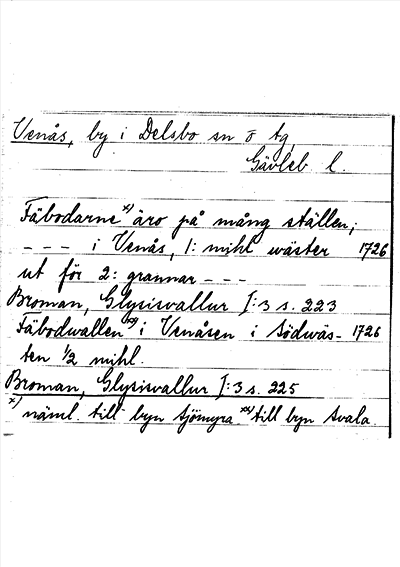 Venås, by i Delsbo sn o tg,
Gävleb l.
Fäbodarne x) äro på mång ställen;
--- i Venås, 1: mihl wäster 1726
ut för 2: grannar ---
Broman, Glysisvallur I:3 s. 223
Fäbodwallen xx) i Venåsen i Södwäs- 1726
ten 1/2 mihl.
Broman, Glysisvallur I:3 s. 225
x) näml. till byn Sjömyra. xx) till byn Svala.